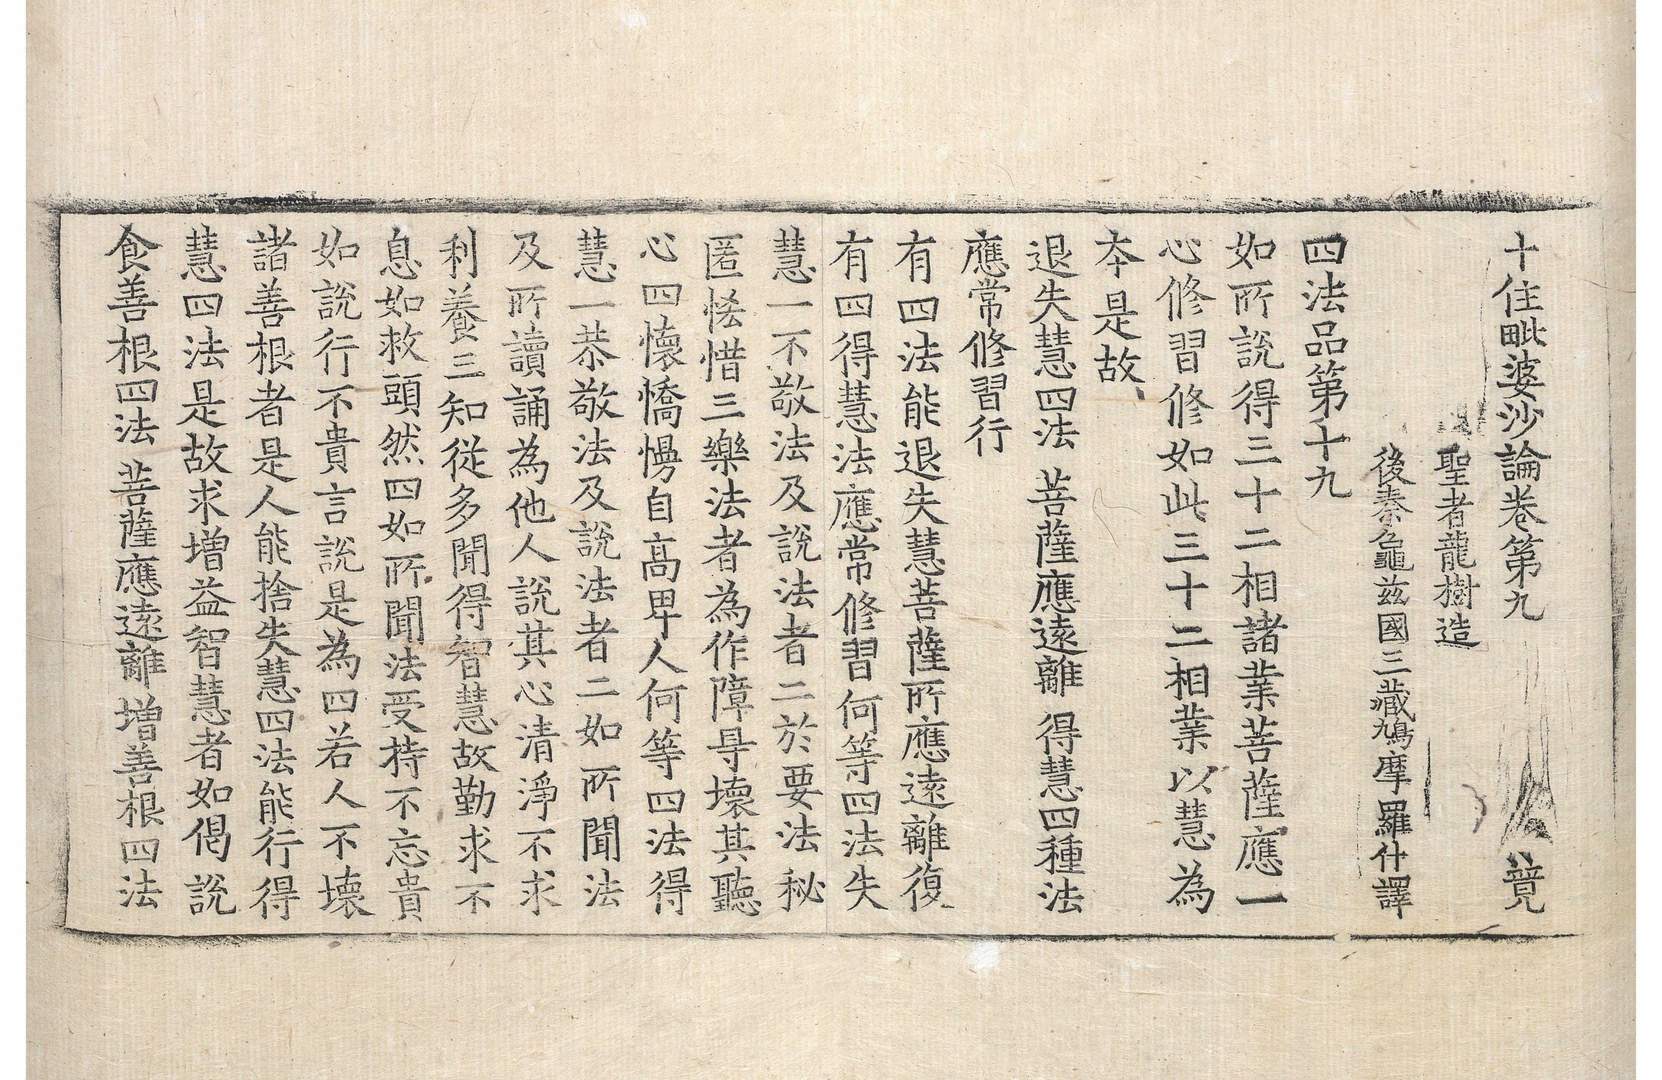 十住毗婆沙論卷第九 竟
聖者龍樹造
後秦龜茲國三藏鳩摩羅什譯
四法品第十九
如所說得三十二相諸業菩薩應一
心修習修如此三十二相業以慧為
本是故
退失慧四法 菩薩應遠離 得慧四種法
應常修習行
有四法能退失慧菩薩所應遠離復
有四得慧法應常修習何等四法失
慧一不敬法及說法者二於要法秘
匿悋惜三樂法者為作障㝵壞其聽
心四懷憍慢自高卑人何等四法得
慧一恭敬法及說法者二如所聞法
及所讀誦為他人說其心清淨不求
利養三知從多聞得智慧故勤求不
息如救頭然四如所聞法受持不忘貴
如說行不貴言說是為四若人不壞
諸善根者是人能捨失慧四法能行得
慧四法是故求增益智慧者如偈說
食善根四法 菩薩應遠離 增善根四法